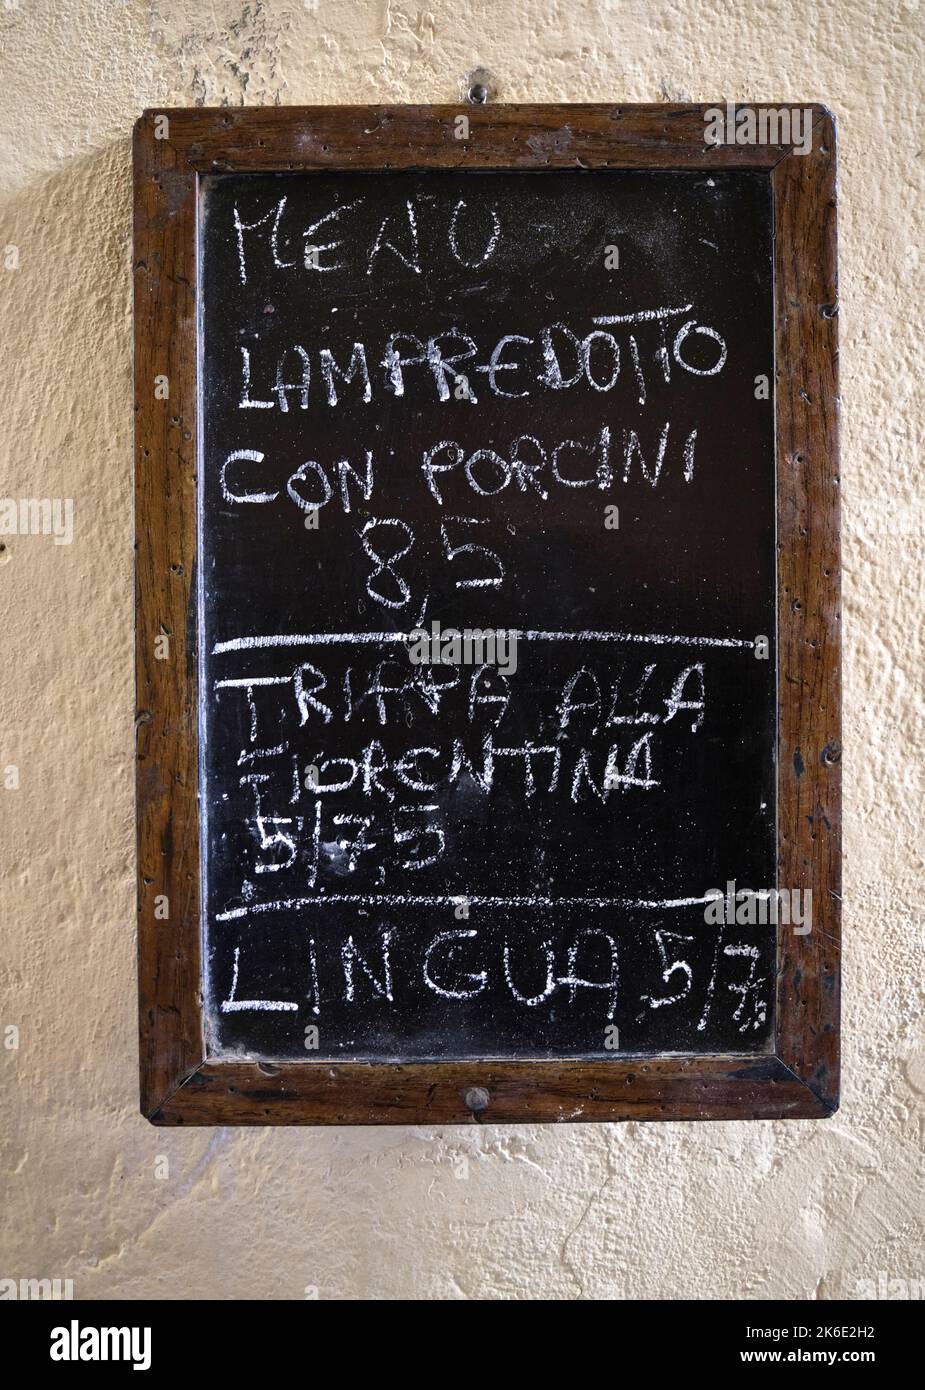 MENU
LAMPREDOTTO
CON PORCINI
8,5
TRIPPA ALLA
FIORENTINA
5/7,5
LINGUA 5/7
alamy
Image ID: 2K6E2H2
www.alamy.com